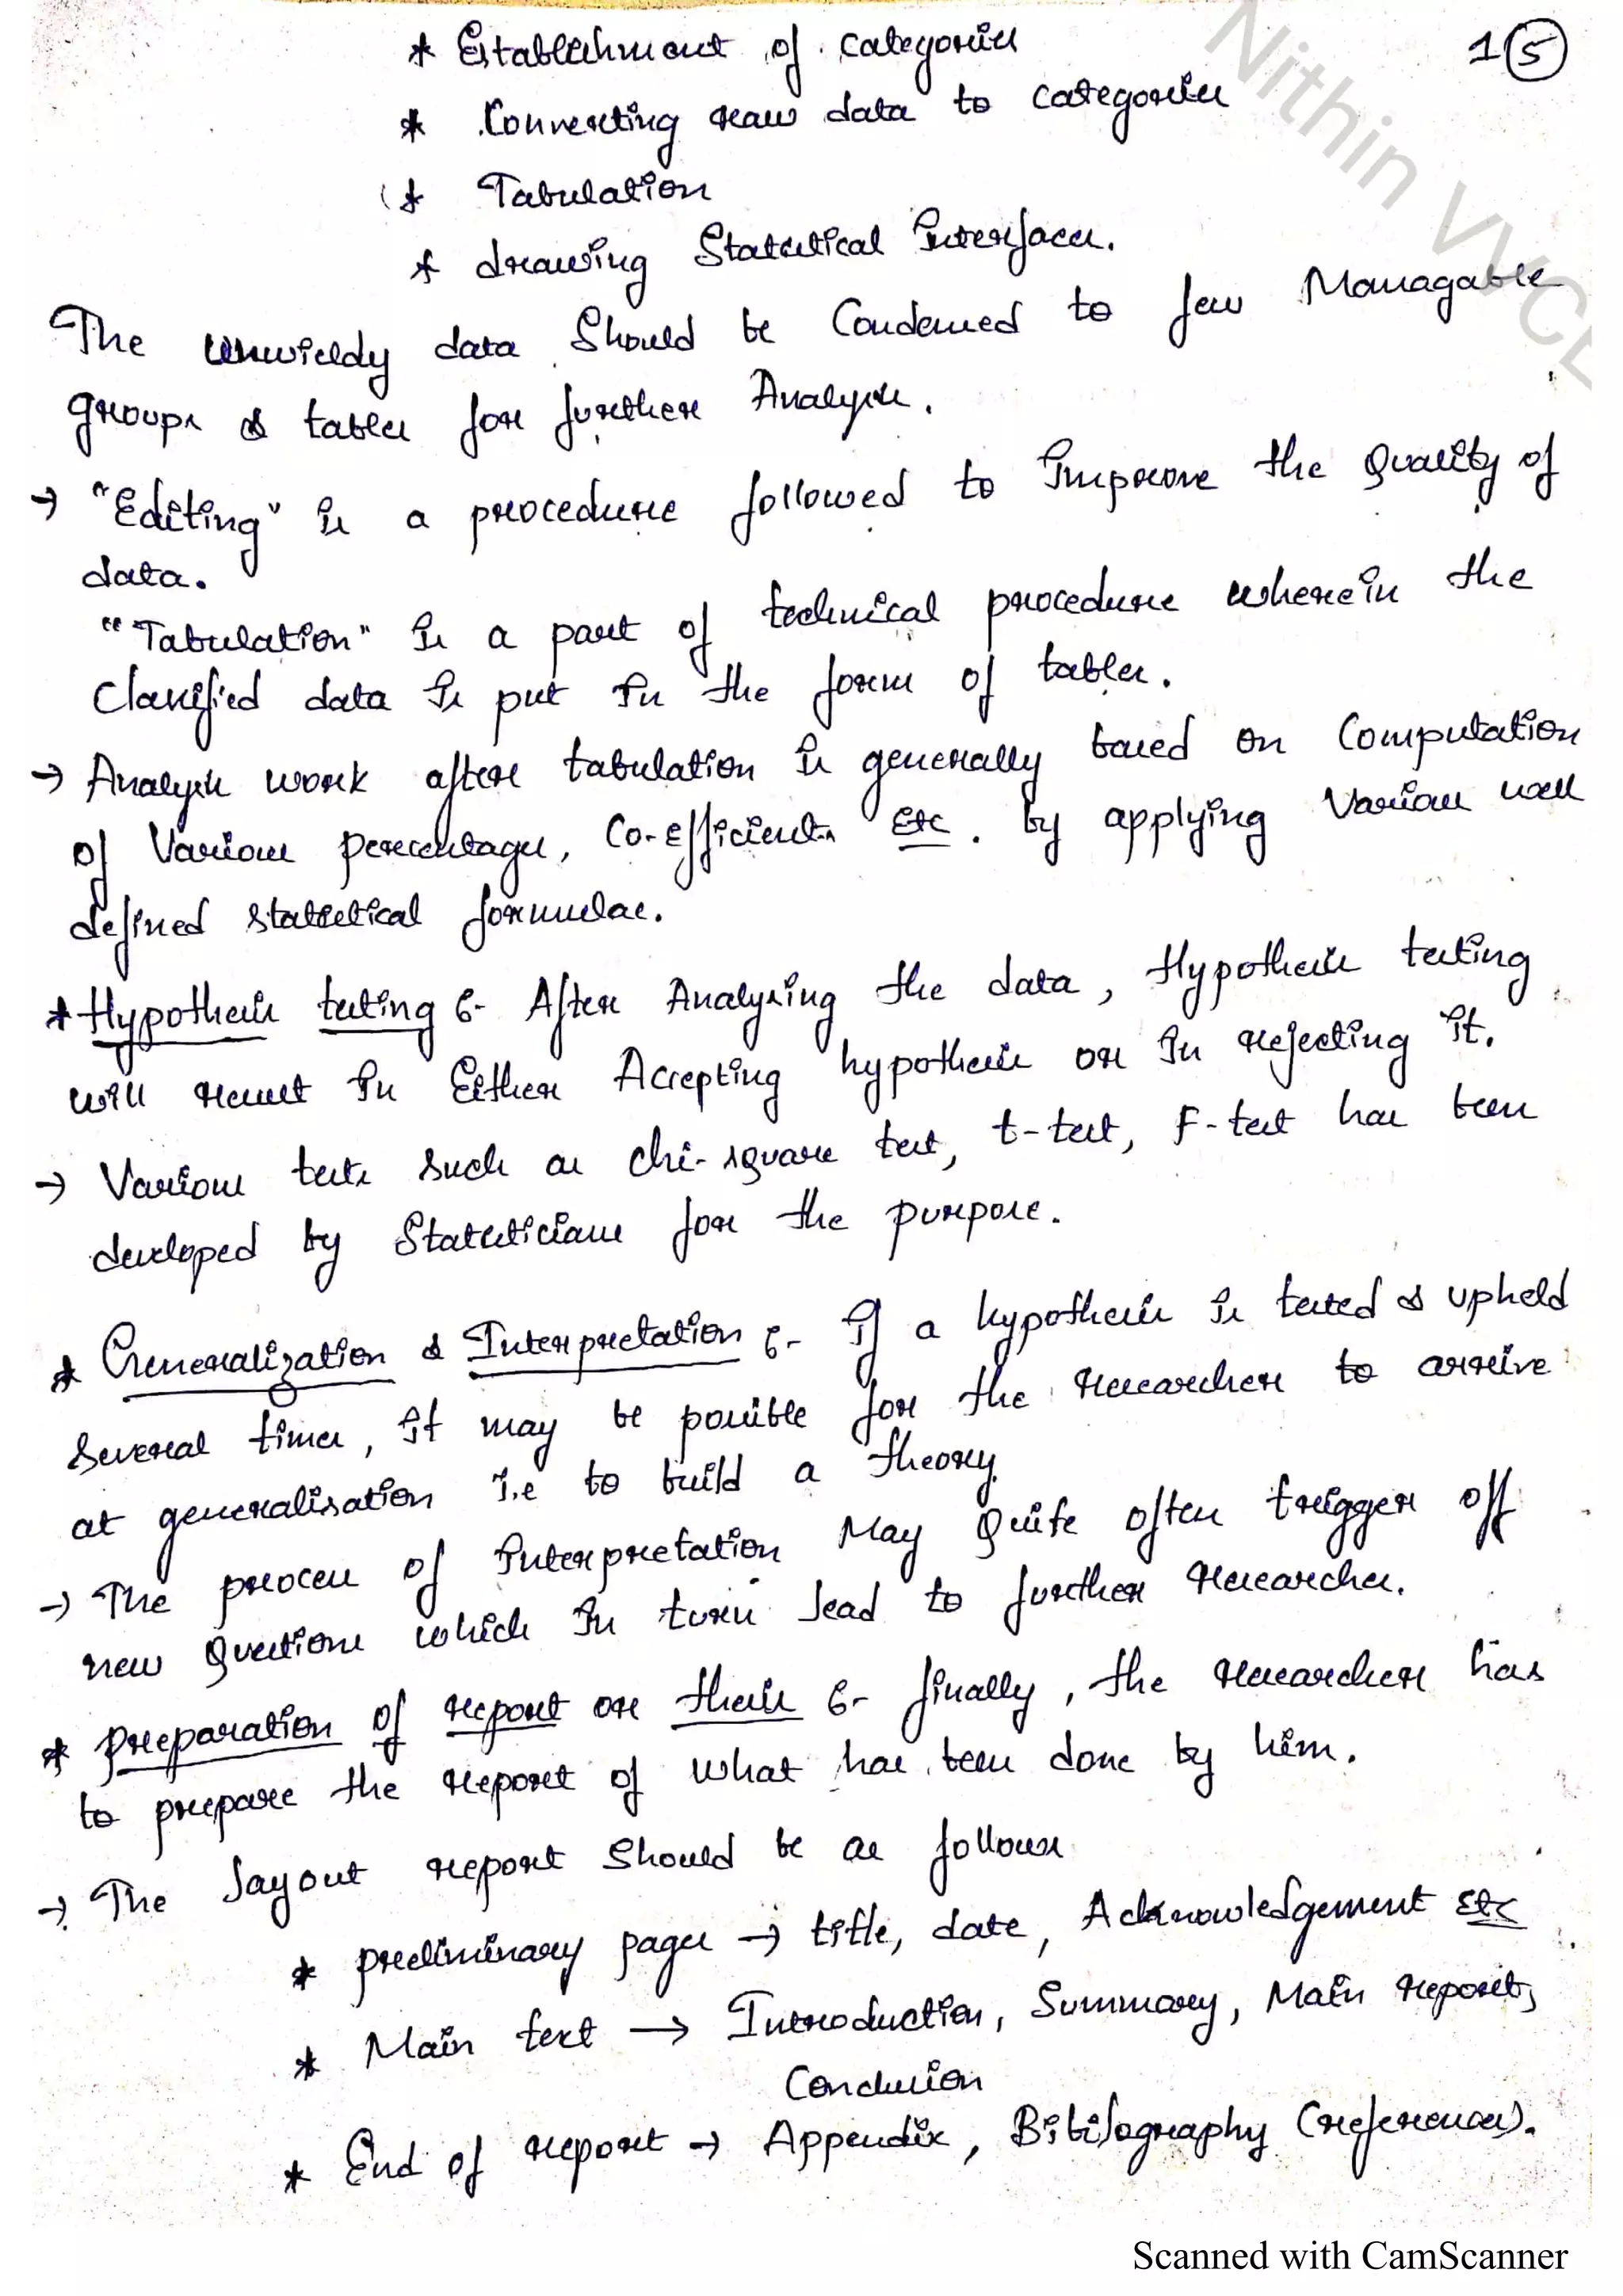 1 5
* Establishment of categories
* Converting raw data to categories
* Tabulation
* drawing Statistical Interfaces.
The unwieldy data should be Condensed to few Managable
groups & tables for further Analysis.
→ "Editing" is a procedure followed to Improve the Quality of
data.
"Tabulation" is a part of technical procedure wherein the
Classified data is put in the form of tables.
→ Analysis work after tabulation is generally based on Computation
of Various percentages, Co-efficients Etc. by applying Various well
defined statistical formulae.
* Hypothesis testing :- After Analysing the data, Hypothesis testing
will result in Either Accepting hypothesis or in rejecting it.
→ Various tests such as chi-square test, t-test, F-test has been
developed by Statisticians for the purpose.
* Generalization & Interpretation :- If a hypothesis is tested & upheld
several times, it may be possible for the researcher to arrive
at generalisation i.e to build a theory.
→ The process of Interpretation May Quite often trigger off
new Questions which in turn lead to further researches.
* preparation of report or thesis :- finally, the researcher has
to prepare the report of what has been done by him.
→ The layout report should be as follows
* preliminary pages → title, date, Acknowledgement Etc
* Main text → Introduction, Summary, Main reports,
Conclusion
* End of report → Appendix, Bibilography (references).
Nithin VVCE
Scanned with CamScanner